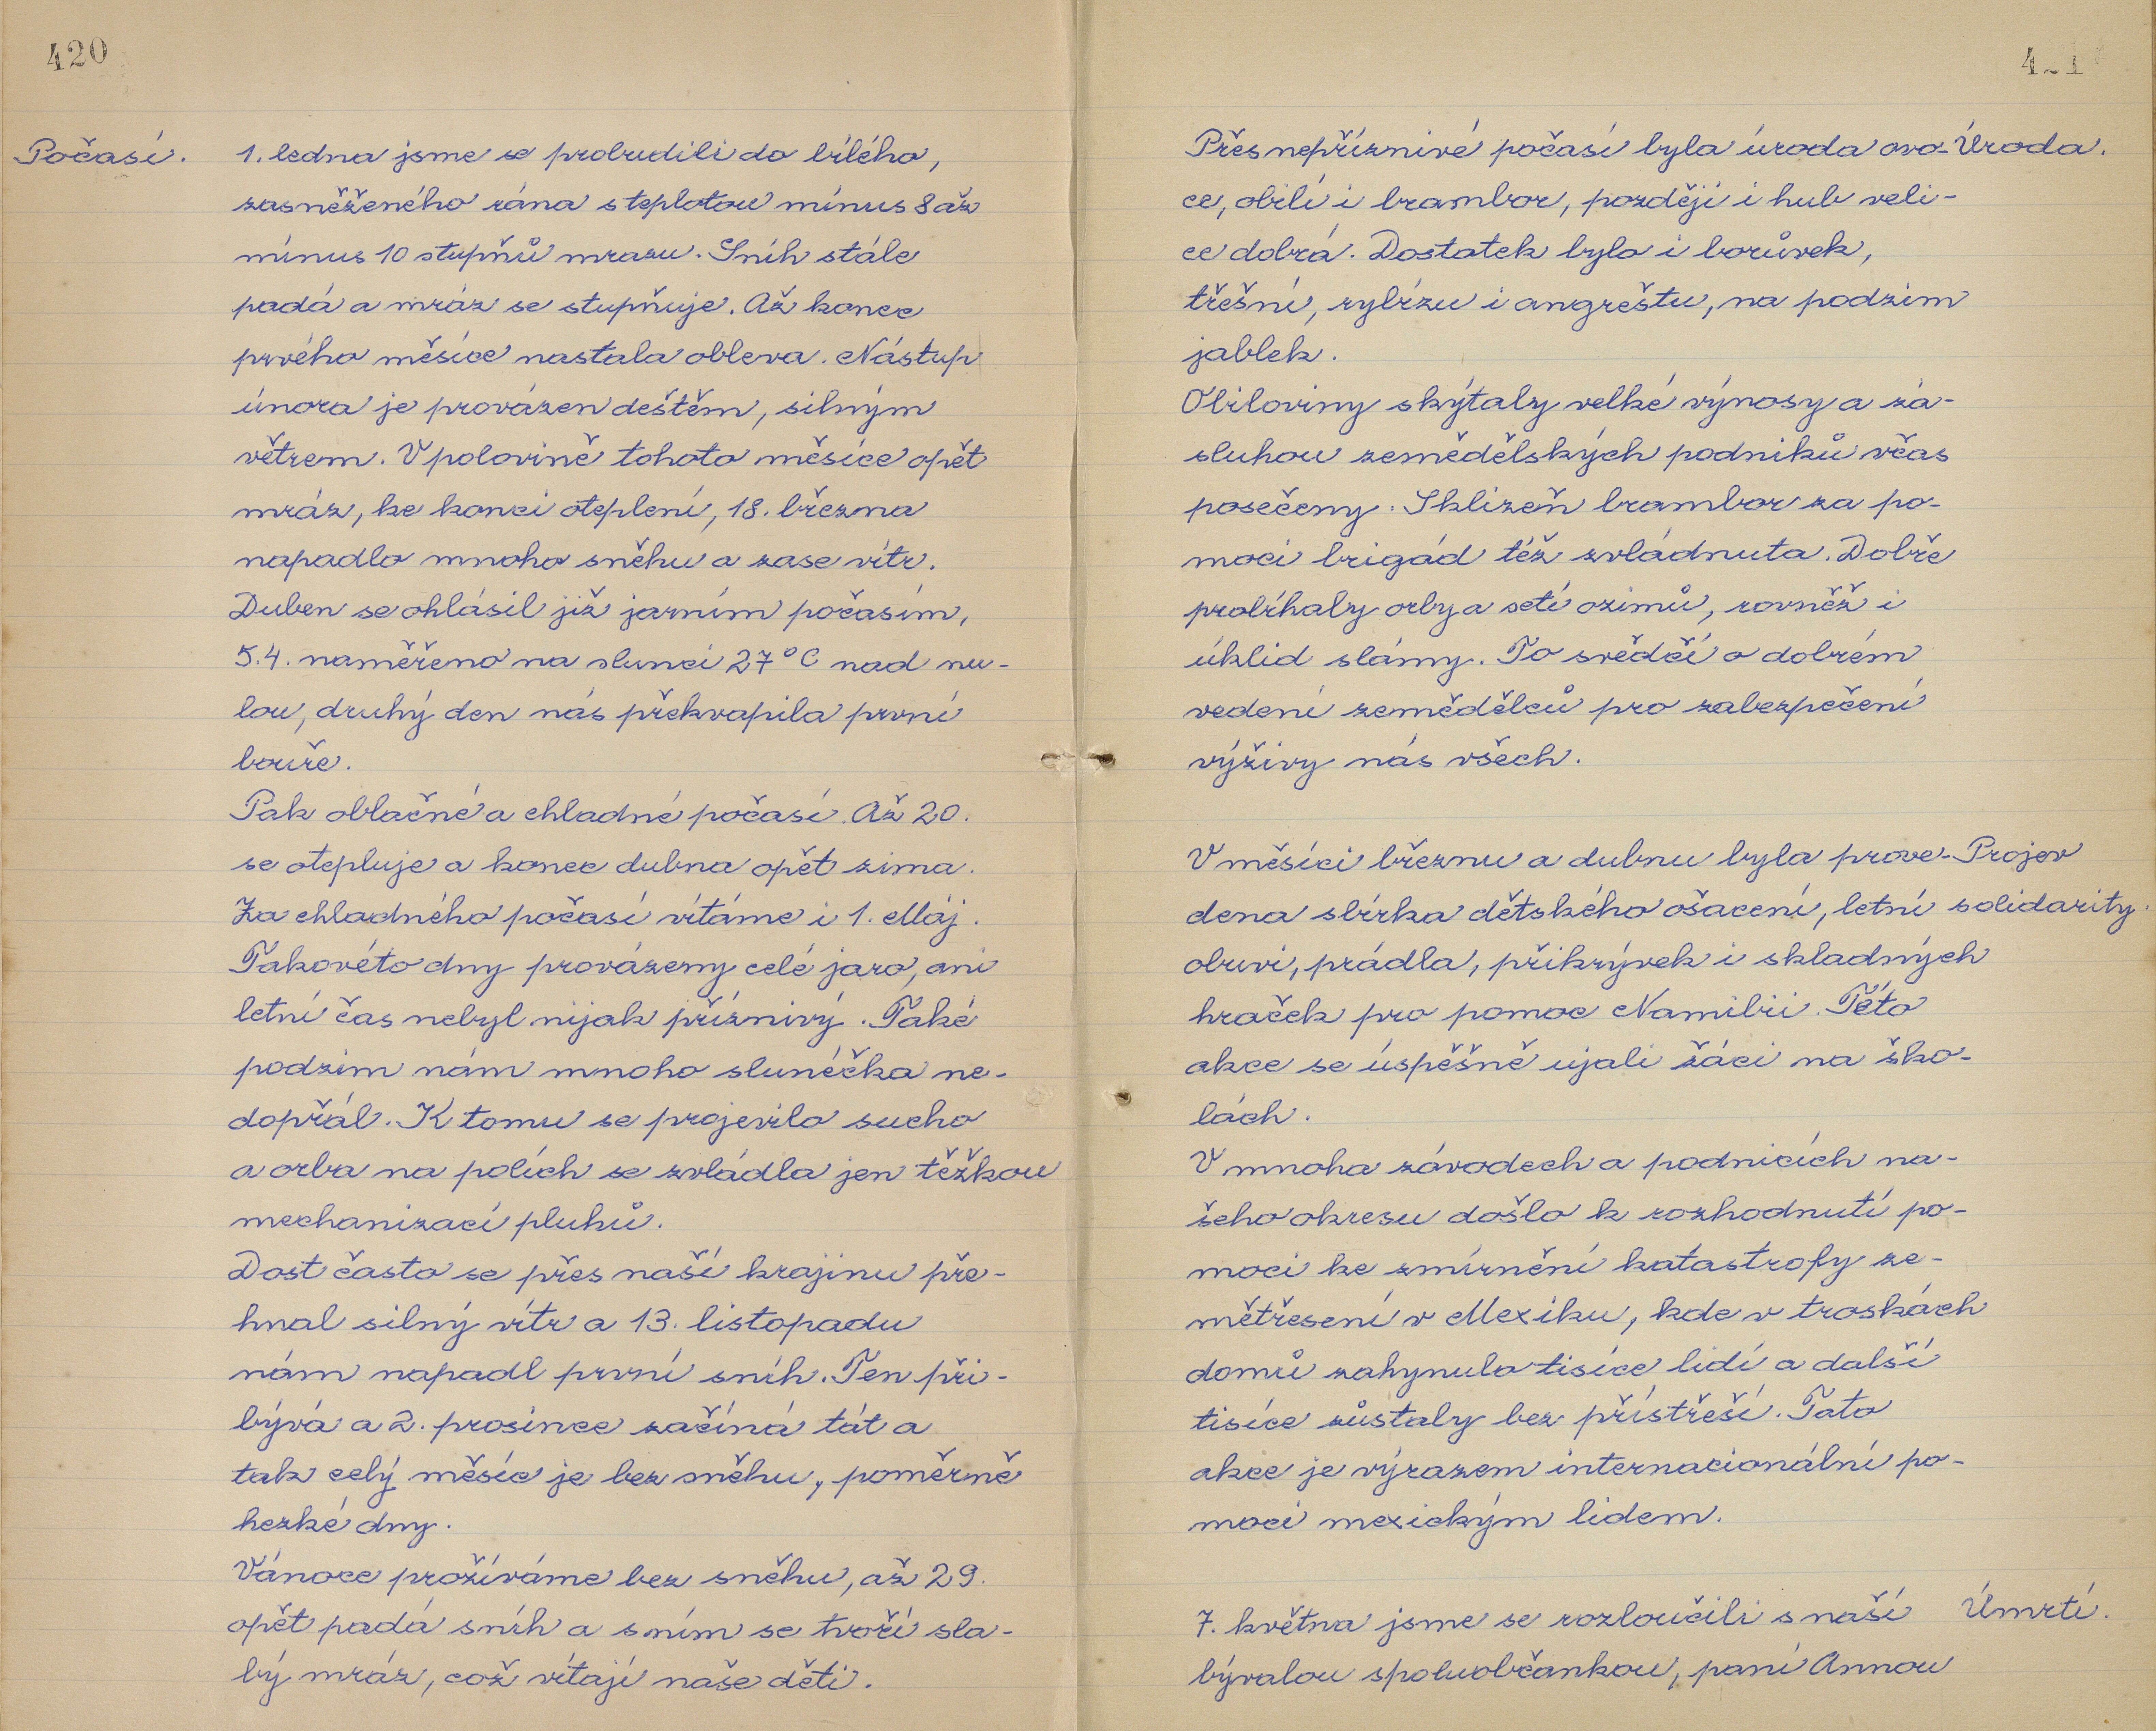 420
Počasí.
1. ledna jsme se probudili do bílého,
zasněženého rána s teplotou mínus 8 až
mínus 10 stupňů mrazu. Sníh stále
padá a mráz se stupňuje. Až konec
prvého měsíce nastala obleva. Nástup
února je provázen deštěm, silným
větrem. V polovině tohoto měsíce opět
mráz, ke konci oteplení, 18. března
napadlo mnoho sněhu a zase vítr.
Duben se ohlásil již jarním počasím,
5.4. naměřeno na slunci 27°C nad nu-
lou, druhý den nás překvapila první
bouře.
Pak oblačné a chladné počasí. Až 20.
se otepluje a konec dubna opět zima.
Za chladného počasí vítáme i 1. Máj.
Takovéto dny provázeny celé jaro, ani
letní čas nebyl nijak příznivý. Také
podzim nám mnoho sluníčka ne-
dopřál. K tomu se projevilo sucho
a orba na polích se zvládla jen těžkou
mechanizací pluhů.
Dost často se přes naší krajinu pře-
hnal silný vítr a 13. listopadu
nám napadl první sníh. Ten při-
bývá a 2. prosince začíná tát a
tak celý měsíc je bez sněhu, poměrně
hezké dny.
Vánoce prožíváme bez sněhu, až 29.
opět padá sníh a s ním se tvoří sla-
bý mráz, což vítají naše děti.
Přes nepříznivé počasí byla úroda ovo- Úroda.
ce, obilí i brambor, později i hub veli-
ce dobrá. Dostatek bylo i borůvek,
třešní, rybízu i angreštu, na podzim
jablek.
Obiloviny skýtaly velké výnosy a zá-
sluhou zemědělských podniků včas
posečeny. Sklizeň brambor za po-
moci brigád též zvládnuta. Dobře
probíhaly orby a setí ozimů, rovněž i
úklid slámy. To svědčí o dobrém
vedení zemědělců pro zabezpečení
výživy nás všech.
V měsíci březnu a dubnu byla prove- Projev
dena sbírka dětského ošacení, letní solidarity.
obuvi, prádla, přikrývek i skladných
hraček pro pomoc Namibii. Této
akce se úspěšně ujali žáci na ško-
lách.
V mnoha závodech a podnicích na-
šeho okresu došlo k rozhodnutí po-
moci ke zmírnění katastrofy ze-
mětřesení v Mexiku, kde v troskách
domů zahynulo tisíce lidí a další
tisíce zůstaly bez přístřeší. Tato
akce je výrazem internacionální po-
moci mexickým lidem.
7. května jsme se rozloučili s naší Úmrtí.
bývalou spoluobčankou, paní Annou